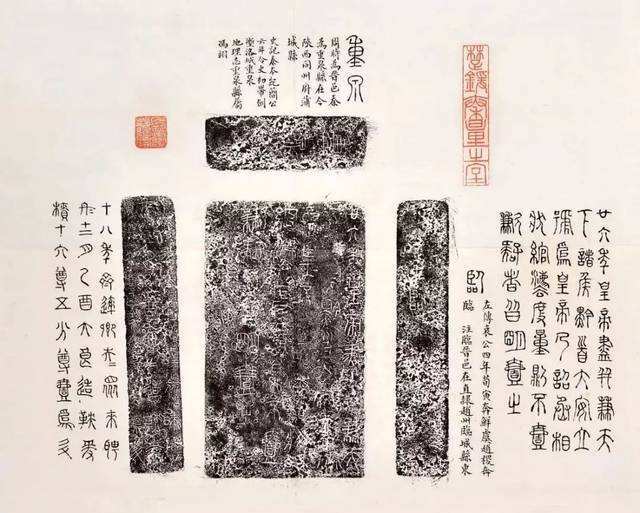 楚錢秦量之室
重泉
周時為晉邑秦
為重泉縣在今
陝西同州府蒲
城縣
史記秦本紀簡公
六年令吏初帶劍
塹洛城重泉
地理志重泉縣屬
馮翊
廿六年皇帝盡并兼天
下諸侯黔首大安立
號為皇帝乃詔丞相
狀綰灋度量則不壹
歉疑者皆明壹之
臨
左傳哀公四年荀寅奔鮮虞趙稷奔
臨 注臨晉邑在直隸趙州臨城縣東
十八年齊䢦卿夫=眾來聘
冬十二月乙酉大良造鞅爰
積十六尊五分尊壹為升